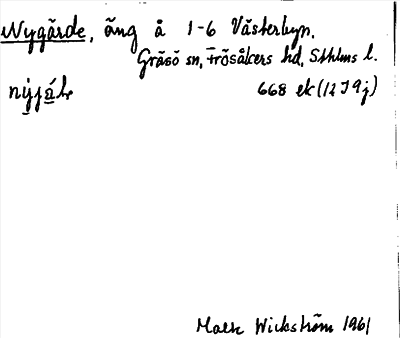 Nygärde, äng å 1-6 Västerbyn.
Gräsö sn, Frösåkers hd, Sthlms l.
668 ek (12 I 9 j)
Wickström 1961